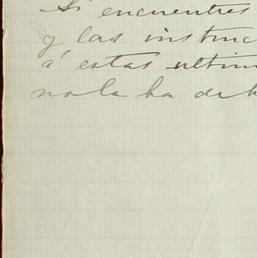 Si encuentres
y las instruc
á estas ultim
no la ha de h